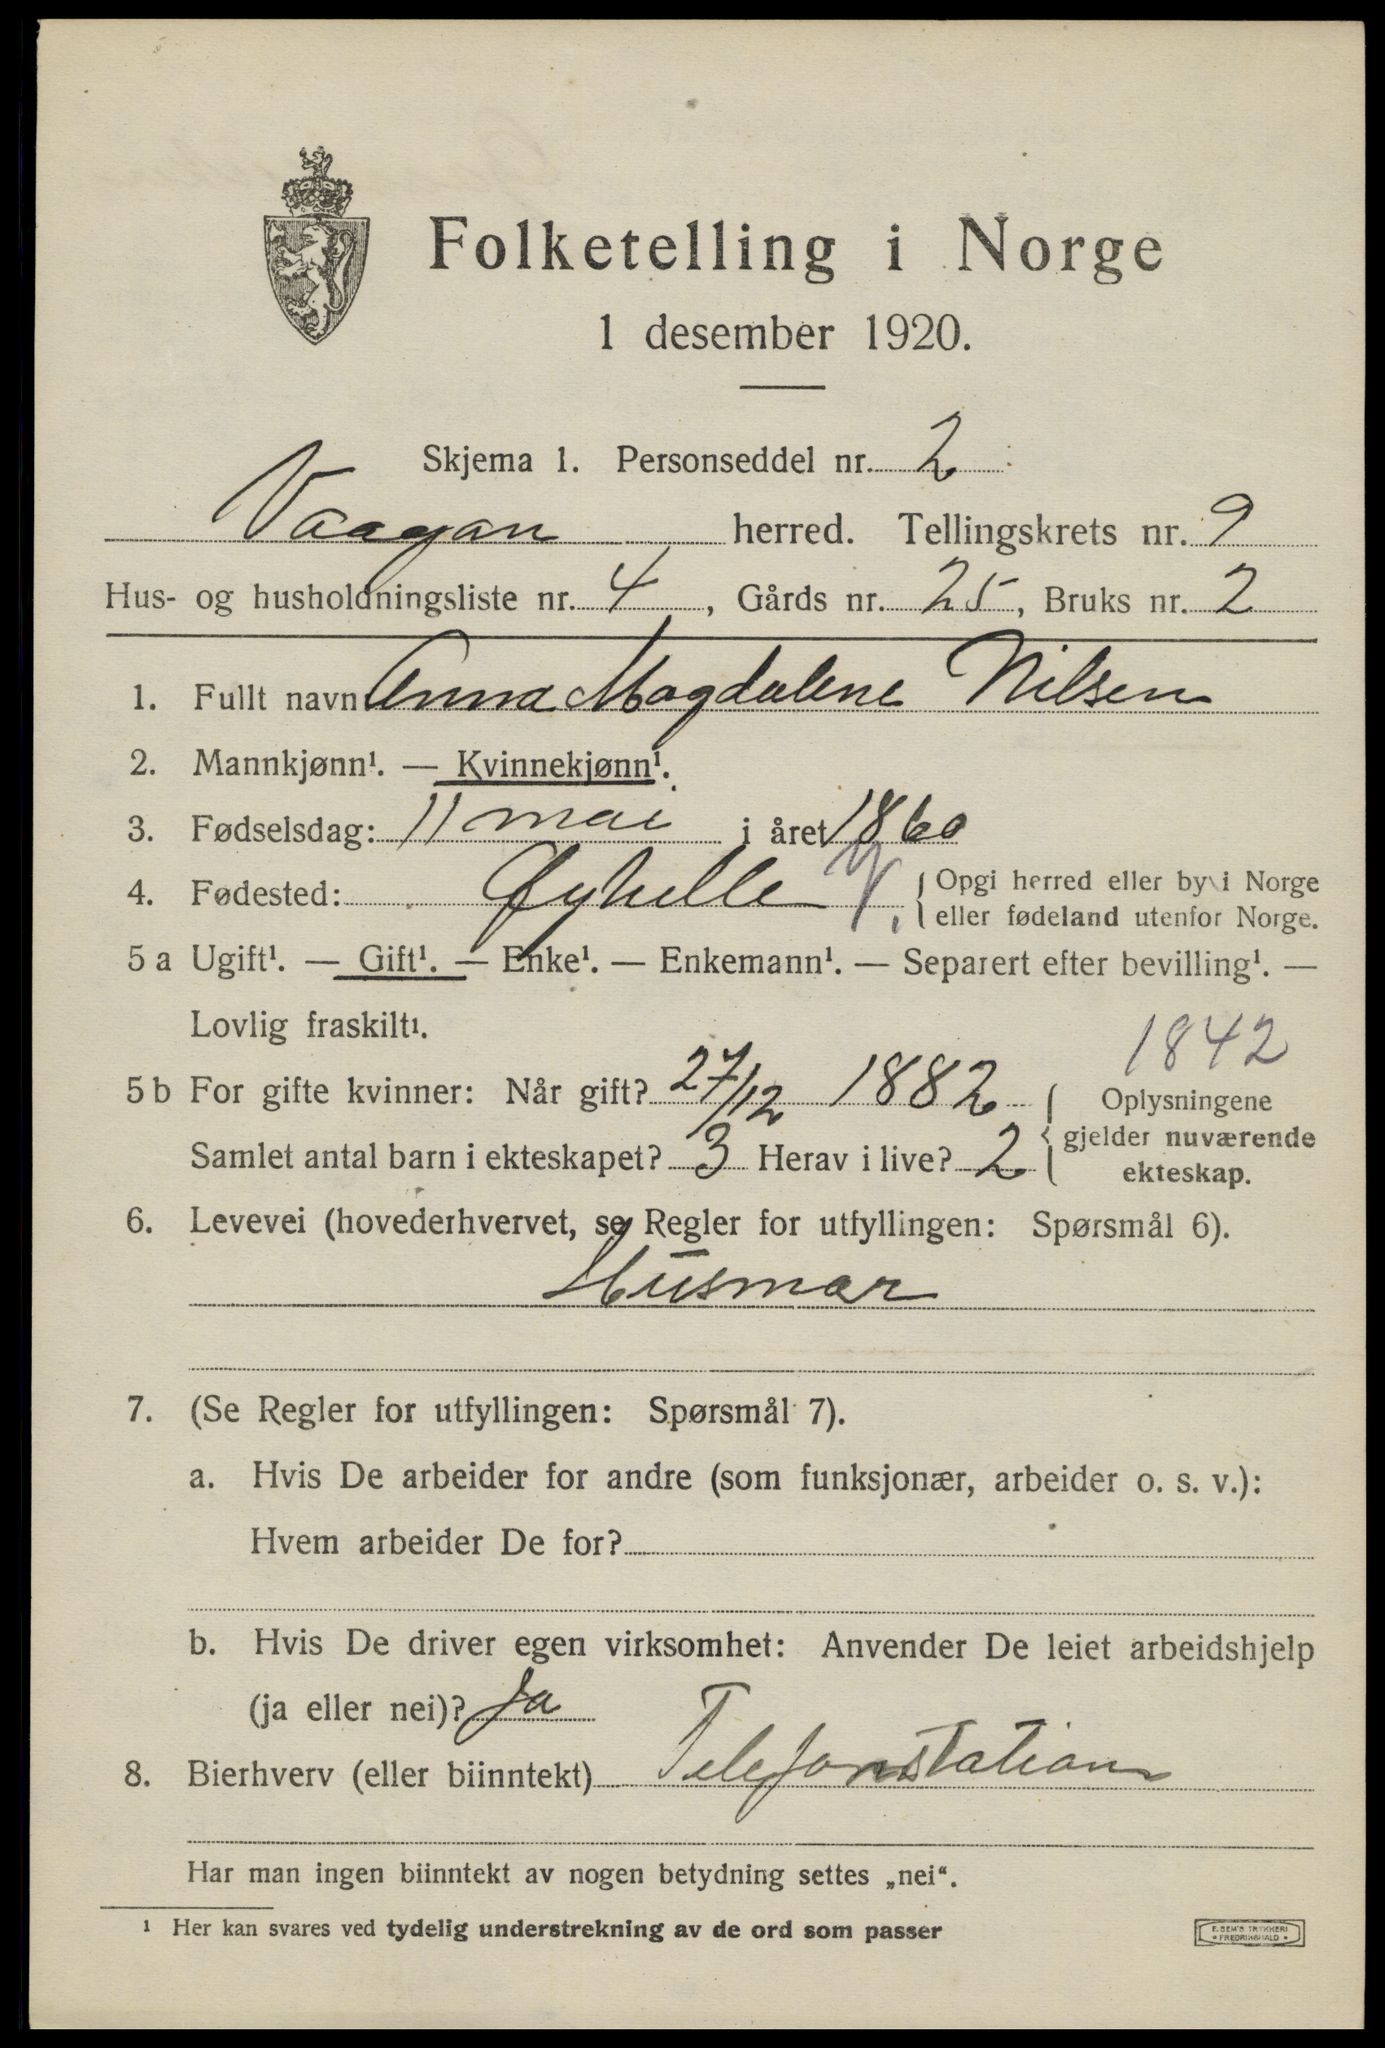 Folketelling i Norge
1 desember 1920.
Skjema 1. Personseddel nr. 2
Vaagan herred. Tellingskrets nr. 9
Hus- og husholdningsliste nr. 4, Gårds nr. 25, Bruks nr. 2
1. Fullt navn Anna Magdalene Nilsen
2. Mannkjønn¹. — Kvinnekjønn¹.
3. Fødselsdag: 11 mai i året 1860
4. Fødested: Øyhelle {Opgi herred eller by i Norge
eller fødeland utenfor Norge.
5 a Ugift¹. — Gift¹. — Enke¹. — Enkemann¹. — Separert efter bevilling¹. —
Lovlig fraskilt¹.
1842
5 b For gifte kvinner: Når gift? 27/12 1882 { Oplysningene
Samlet antal barn i ekteskapet? 3 Herav i live? 2 gjelder nuværende
ekteskap.
6. Levevei (hovederhvervet, se Regler for utfyllingen: Spørsmål 6).
Husmor
7. (Se Regler for utfyllingen: Spørsmål 7).
a. Hvis De arbeider for andre (som funksjonær, arbeider o. s. v.):
Hvem arbeider De for?
b. Hvis De driver egen virksomhet: Anvender De leiet arbeidshjelp
(ja eller nei)? Ja
8. Bierhverv (eller biinntekt) Telefonstation
Har man ingen biinntekt av nogen betydning settes „nei“.
¹ Her kan svares ved tydelig understrekning av de ord som passer
E. SEM'S TRYKKERI
• FREDRIKSHALD •